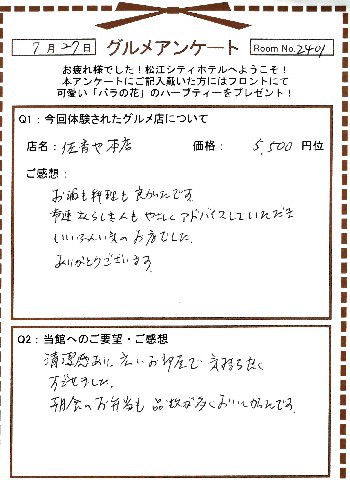 7月27日 グルメアンケート Room No.2401
お疲れ様でした！松江シティホテルへようこそ！
本アンケートにご記入戴いた方にはフロントにて
可愛い「バラの花」のハーブティーをプレゼント！
Q1：今回体験されたグルメ店について
店名：佐香や本店 価格：5,500円位
ご感想：
お酒も料理も良かったです。
常連さんらしき人もやさしくアドバイスしていただき
いいふんいきのお店でした。
ありがとうございます。
Q2：当館へのご要望・ご感想
清潔感あり広いお部屋で気持ち良く
すごせました。
朝食のお弁当も品数が多くおいしかったです。